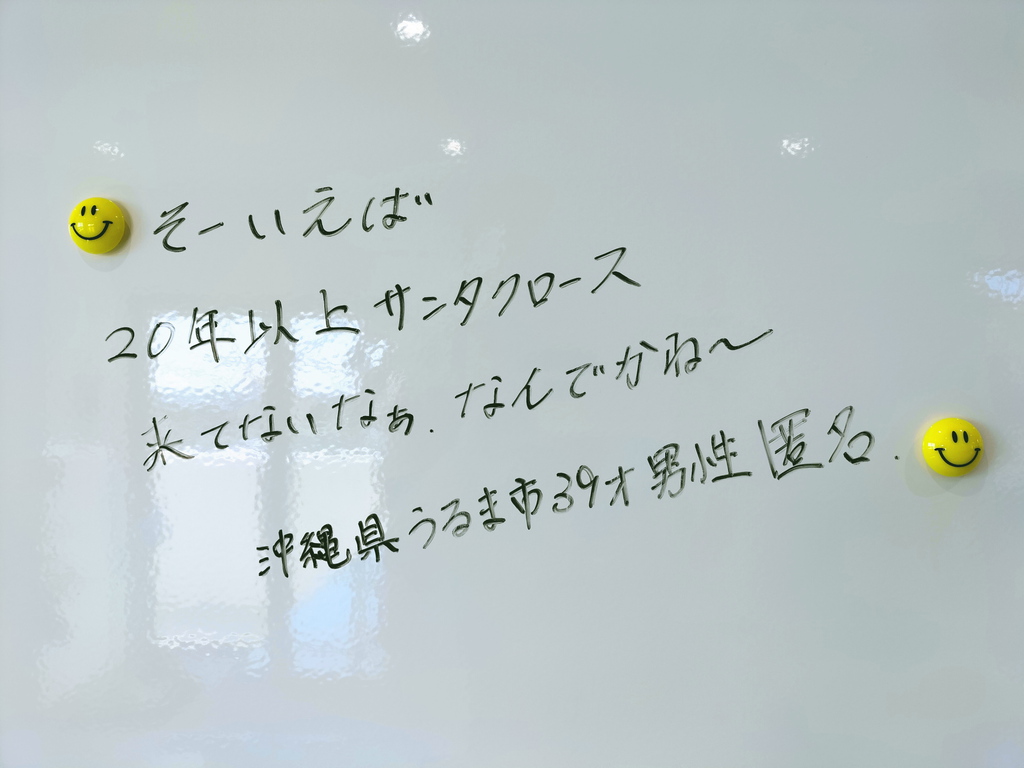 そーいえば
20年以上サンタクロース
来てないなぁ.なんでかね〜
沖縄県うるま市39才男性匿名.